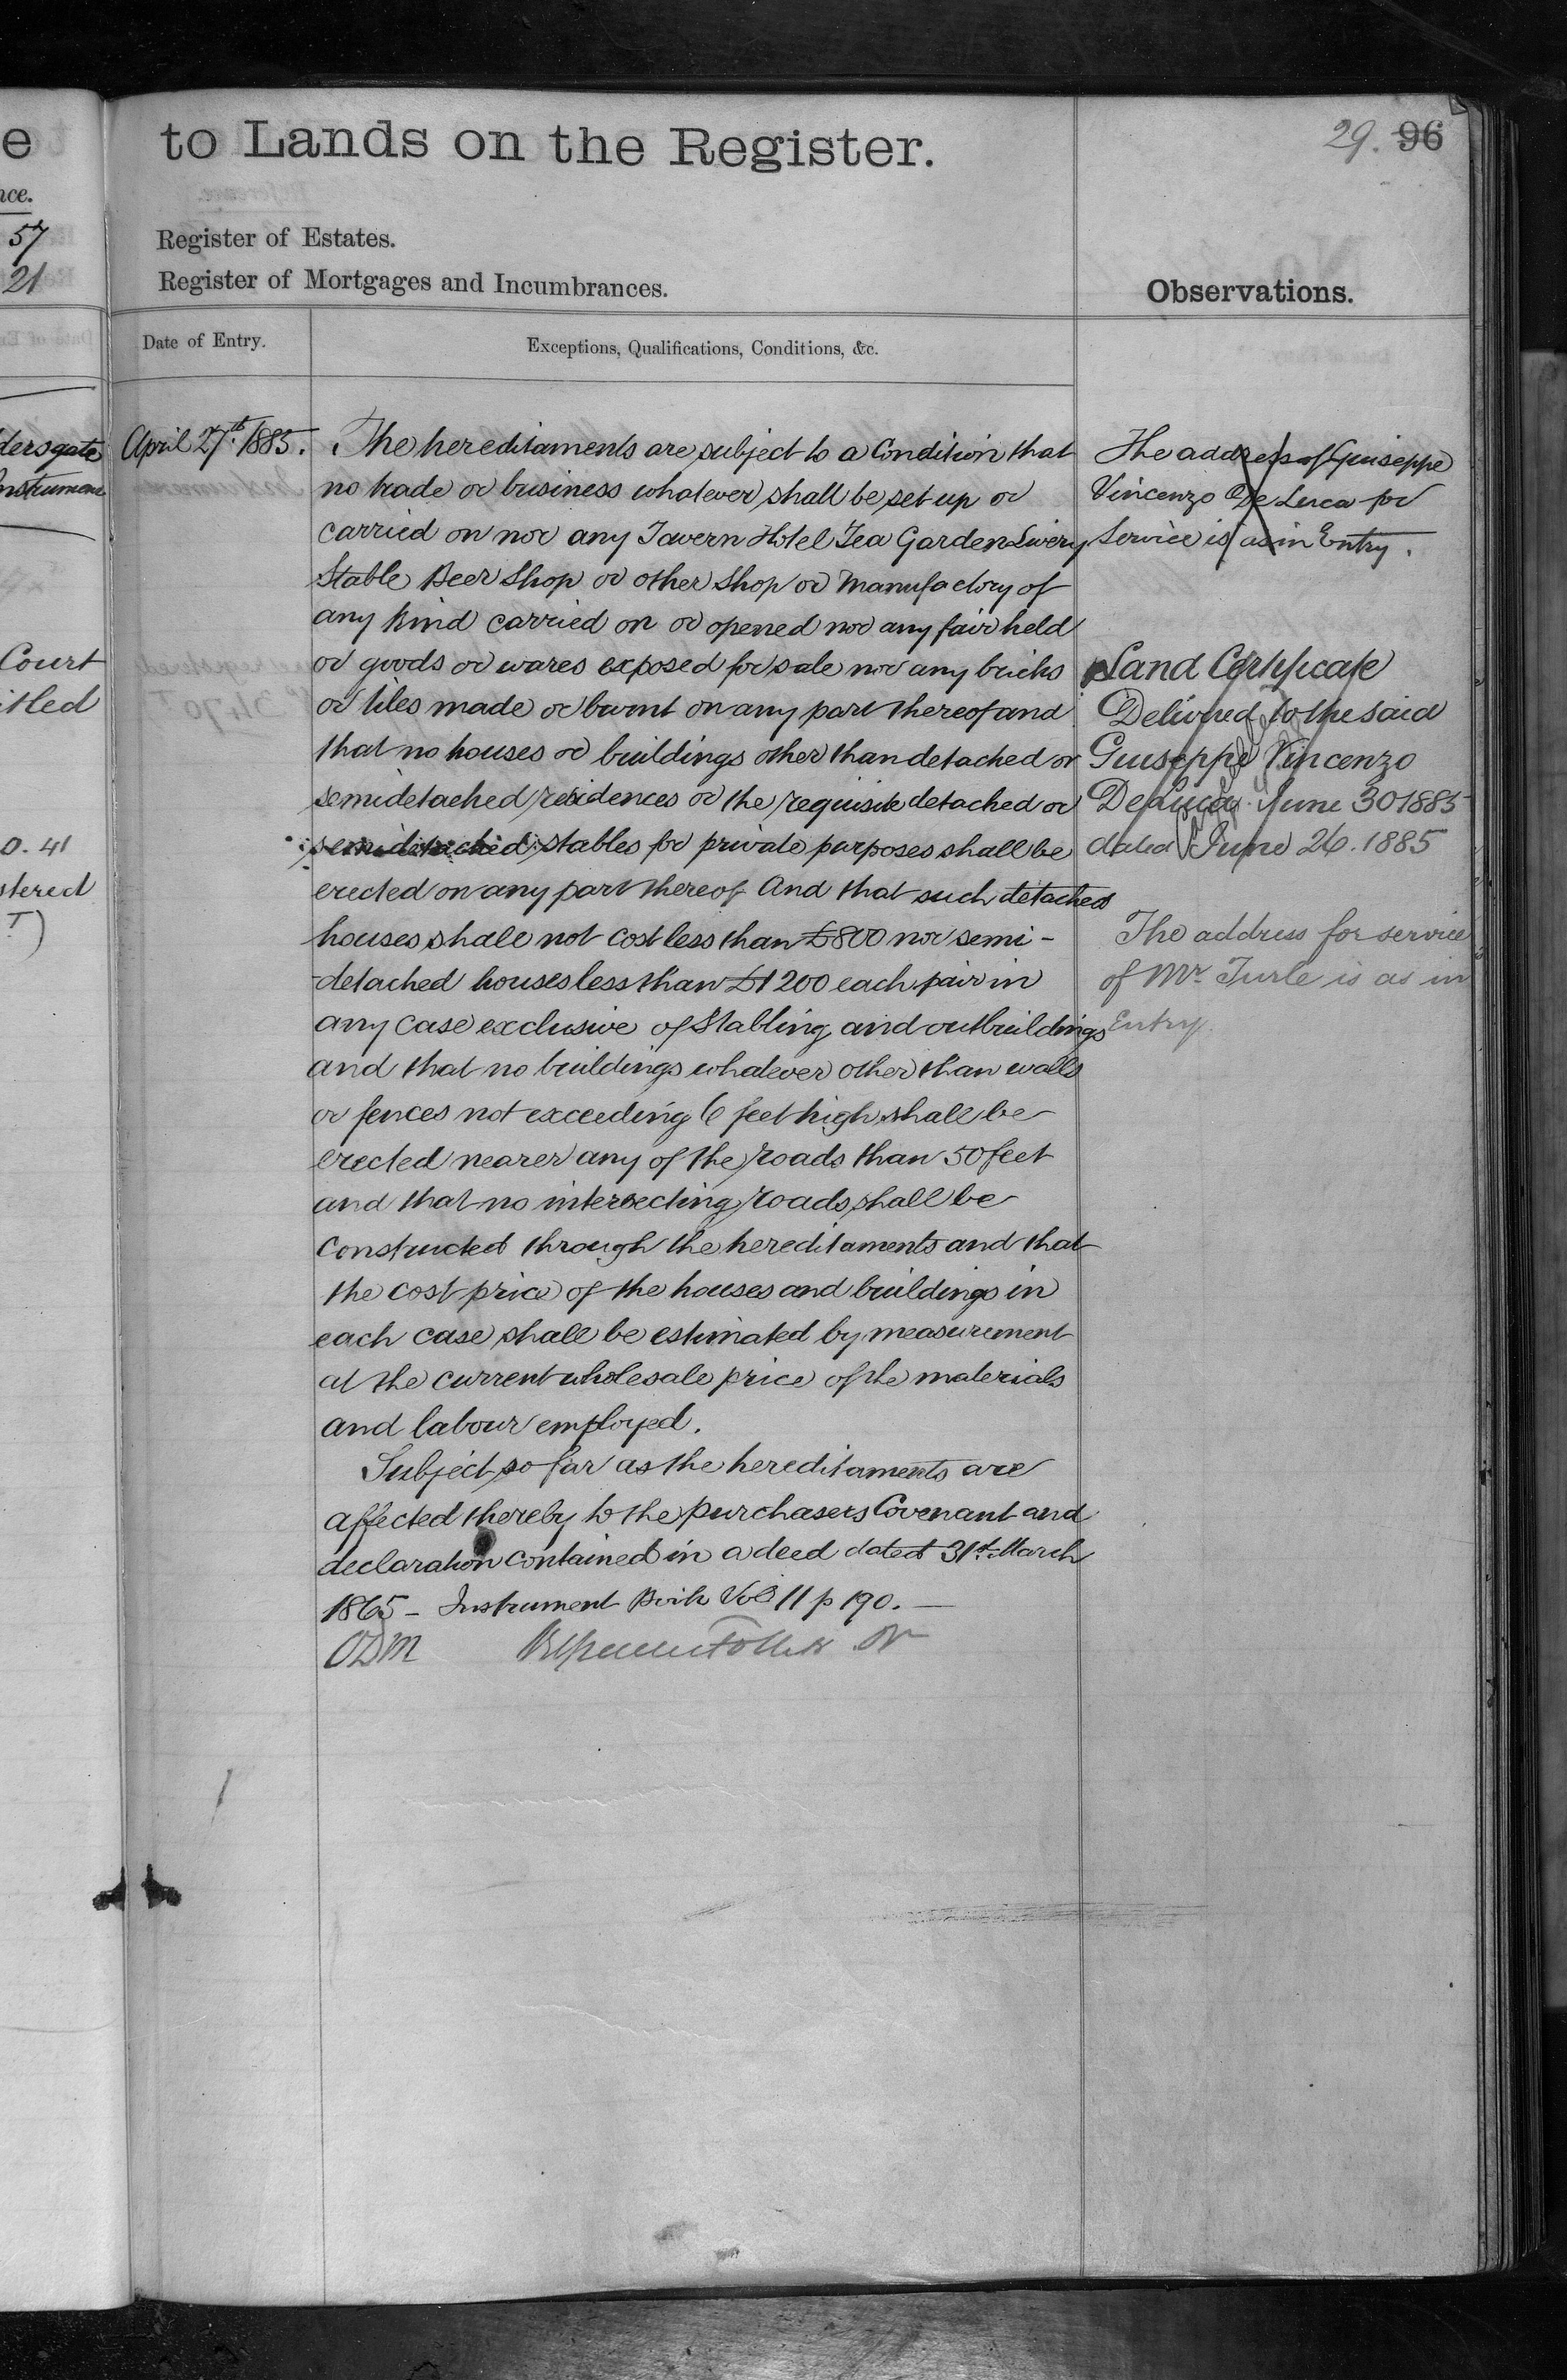 e
nce.
57
21
dersgate
Instrument
Court
itled
0. 41
stered
T)
to Lands on the Register.
29. 96
Register of Estates.
Register of Mortgages and Incumbrances.
Observations.
Date of Entry.
Exceptions, Qualifications, Conditions, &c.
April 27th. 1885.
The hereditaments are subject to a Condition that
no trade or business whatever shall be set up or
carried on nor any Tavern Hotel Tea Garden Livery
Stable Beer Shop or other Shop or Manufactory of
any kind carried on or opened nor any fair held
or goods or wares exposed for sale nor any bricks
or tiles made or burnt on any part thereof and
that no houses or buildings other than detached or
semidetached residences or the requisite detached or
semidetached stables for private purposes shall be
erected on any part thereof And that such detached
houses shall not cost less than £800 nor semi-
-detached houses less than £1200 each pair in
any case exclusive of Stabling and outbuildings
and that no buildings whatever other than walls
or fences not exceeding 6 feet high shall be
erected nearer any of the roads than 50 feet
and that no intersecting roads shall be
constructed through the hereditaments and that
the cost price of the houses and buildings in
each case shall be estimated by measurement
at the current wholesale price of the materials
and labour employed.
Subject so far as the hereditaments are
affected thereby to the purchasers Covenant and
declaration contained in a deed dated 31st March
1865 - Instrument Book Vol 11 p 190. —
ODM
The address of Guiseppe
Vincenzo De Luca for
Service is as in Entry.
Land Certificate
Delivered to the said
Guiseppe Vincenzo
De Luca June 30 1885
dated June 26. 1885
The address for service
of Mr. Turle is as in
Entry.